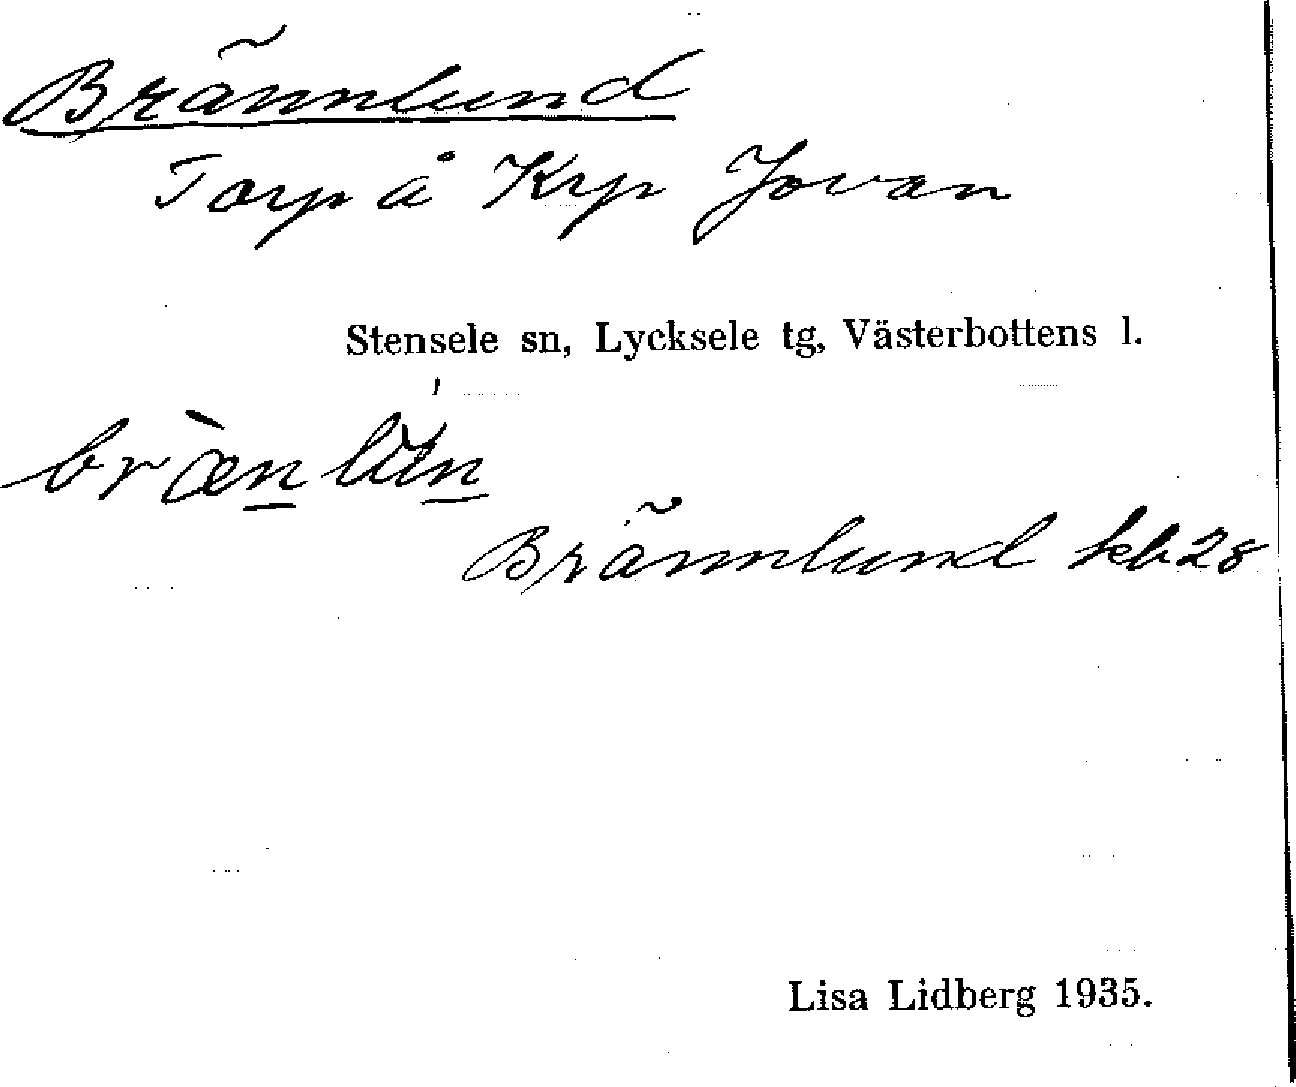 Brännlund
Torp å Krp Jovan
Stensele sn, Lycksele tg, Västerbottens l.
Brännlund kb 28
Lisa Lidberg 1935.